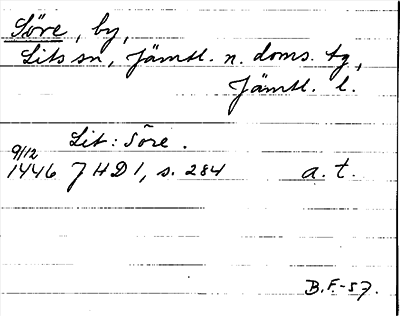 Söre, by,
Lits sn, Jämtl. n. doms. tg,
Jämtl. l.
Lit: Söre.
9/12
1446 JHD 1, s. 284 a. t.
B.F-57.